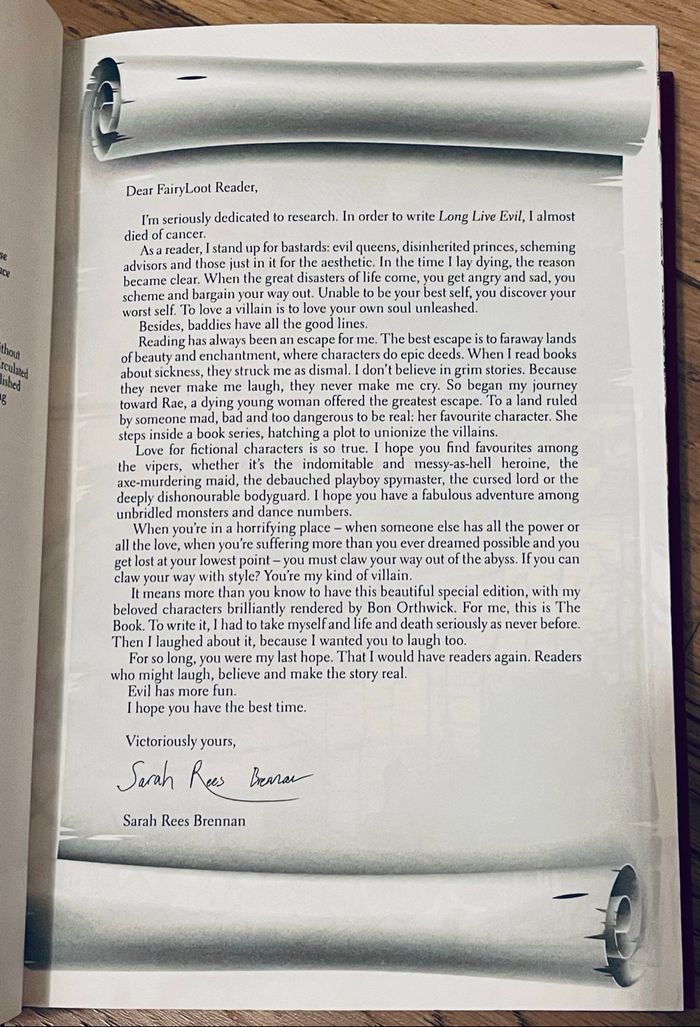 Dear FairyLoot Reader,
I'm seriously dedicated to research. In order to write Long Live Evil, I almost
died of cancer.
As a reader, I stand up for bastards: evil queens, disinherited princes, scheming
advisors and those just in it for the aesthetic. In the time I lay dying, the reason
became clear. When the great disasters of life come, you get angry and sad, you
scheme and bargain your way out. Unable to be your best self, you discover your
worst self. To love a villain is to love your own soul unleashed.
Besides, baddies have all the good lines.
Reading has always been an escape for me. The best escape is to faraway lands
of beauty and enchantment, where characters do epic deeds. When I read books
about sickness, they struck me as dismal. I don't believe in grim stories. Because
they never make me laugh, they never make me cry. So began my journey
toward Rae, a dying young woman offered the greatest escape. To a land ruled
by someone mad, bad and too dangerous to be real: her favourite character. She
steps inside a book series, hatching a plot to unionize the villains.
Love for fictional characters is so true. I hope you find favourites among
the vipers, whether it's the indomitable and messy-as-hell heroine, the
axe-murdering maid, the debauched playboy spymaster, the cursed lord or the
deeply dishonourable bodyguard. I hope you have a fabulous adventure among
unbridled monsters and dance numbers.
When you're in a horrifying place – when someone else has all the power or
all the love, when you're suffering more than you ever dreamed possible and you
get lost at your lowest point – you must claw your way out of the abyss. If you can
claw your way with style? You're my kind of villain.
It means more than you know to have this beautiful special edition, with my
beloved characters brilliantly rendered by Bon Orthwick. For me, this is The
Book. To write it, I had to take myself and life and death seriously as never before.
Then I laughed about it, because I wanted you to laugh too.
For so long, you were my last hope. That I would have readers again. Readers
who might laugh, believe and make the story real.
Evil has more fun.
I hope you have the best time.
Victoriously yours,
Sarah Rees Brennan
Sarah Rees Brennan